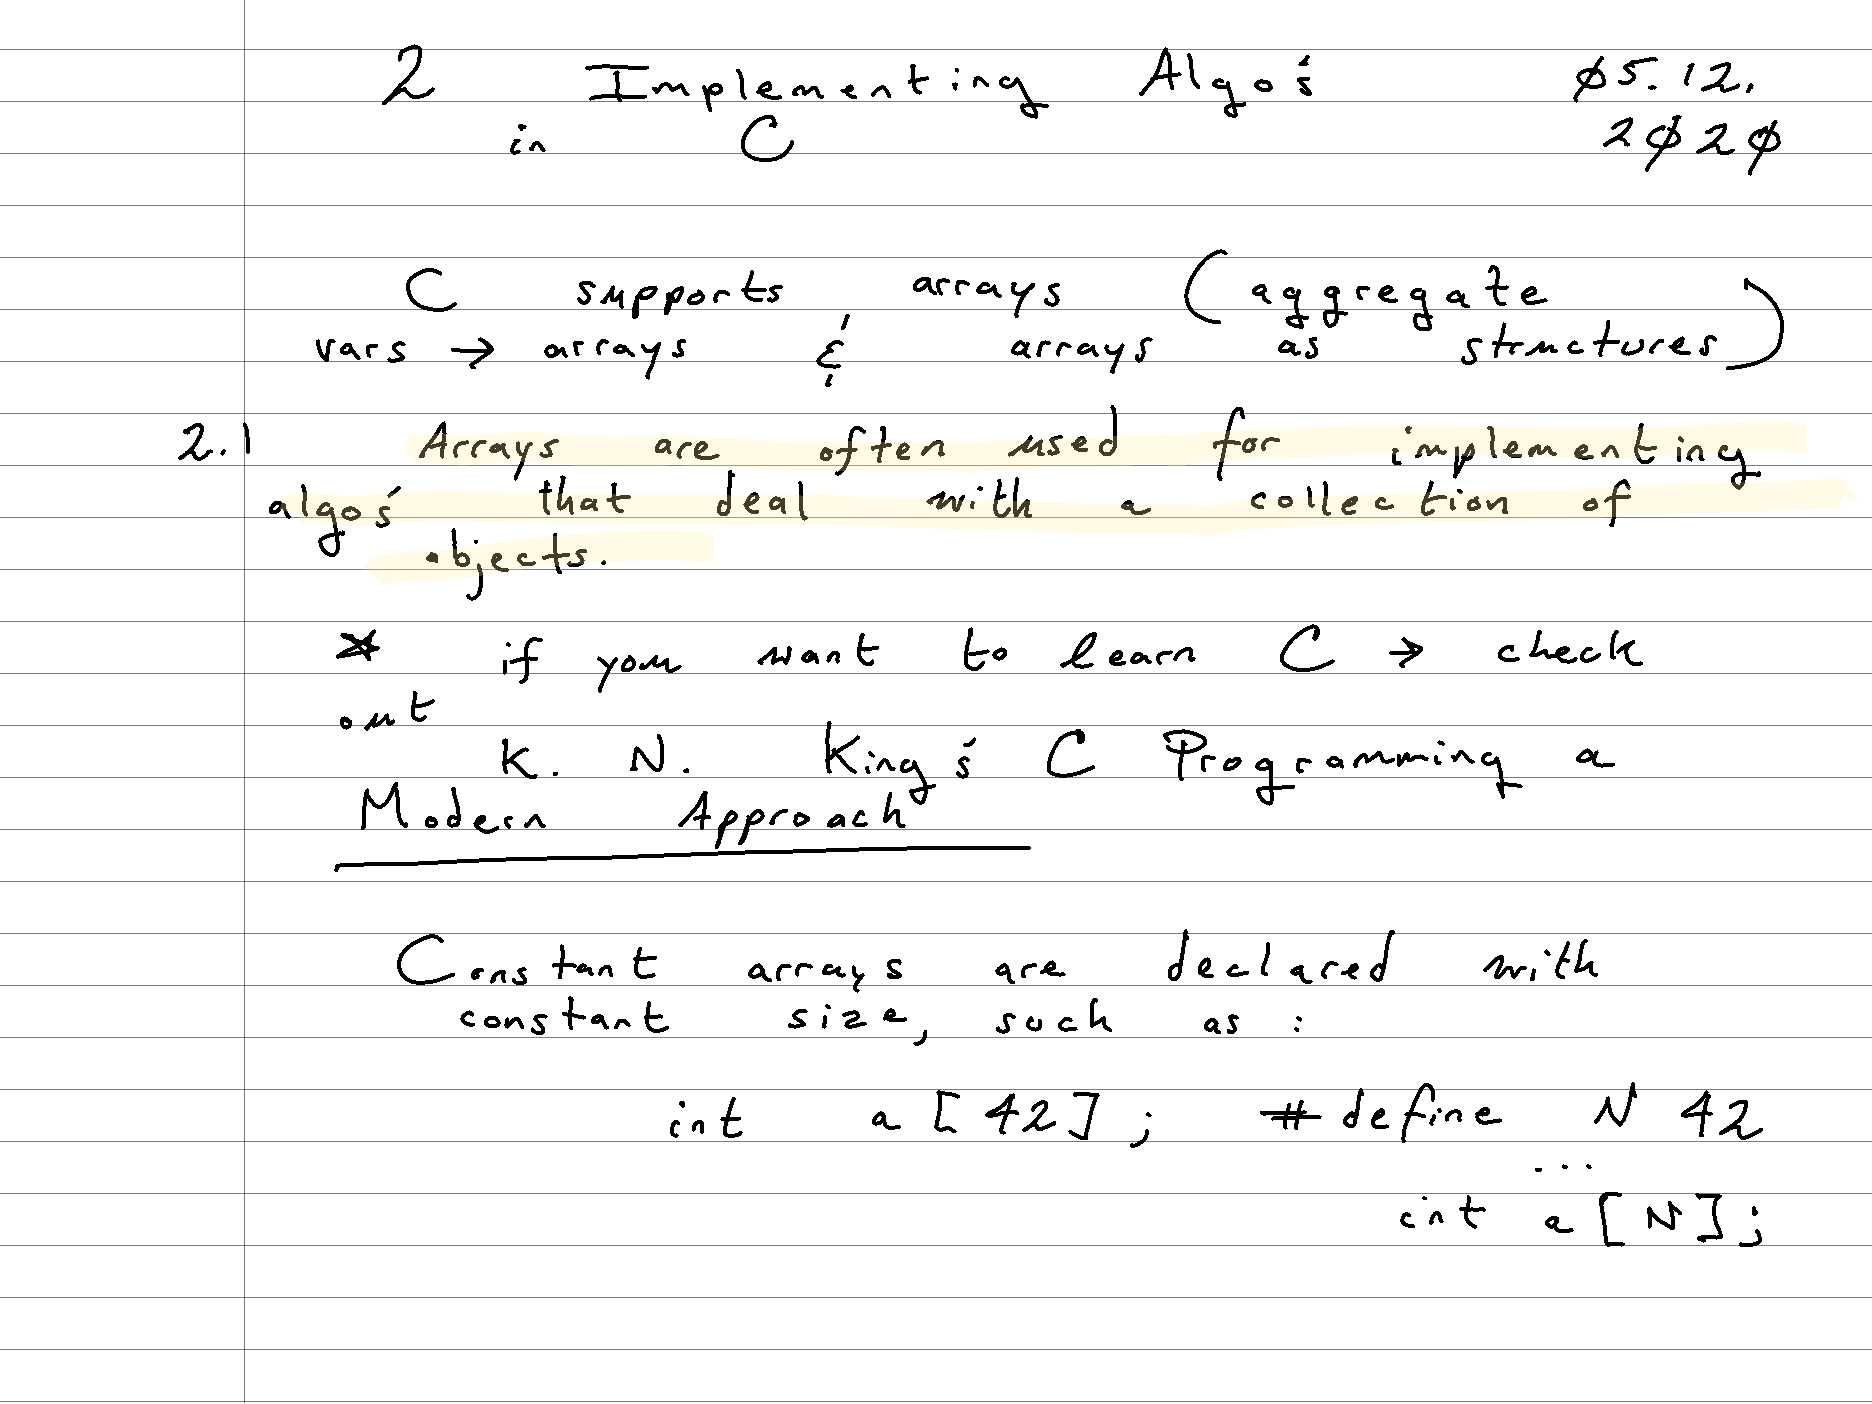 2 Implementing Algo's ø5.12.
in C 2ø2ø
C supports arrays (aggregate
vars → arrays & arrays as structures)
2.1 Arrays are often used for implementing
algo's that deal with a collection of
objects.
* if you want to learn C → check
out
K. N. King's C Programming a
Modern Approach
Constant arrays are declared with
constant size, such as :
int a [42]; # define N 42
...
int a [N];